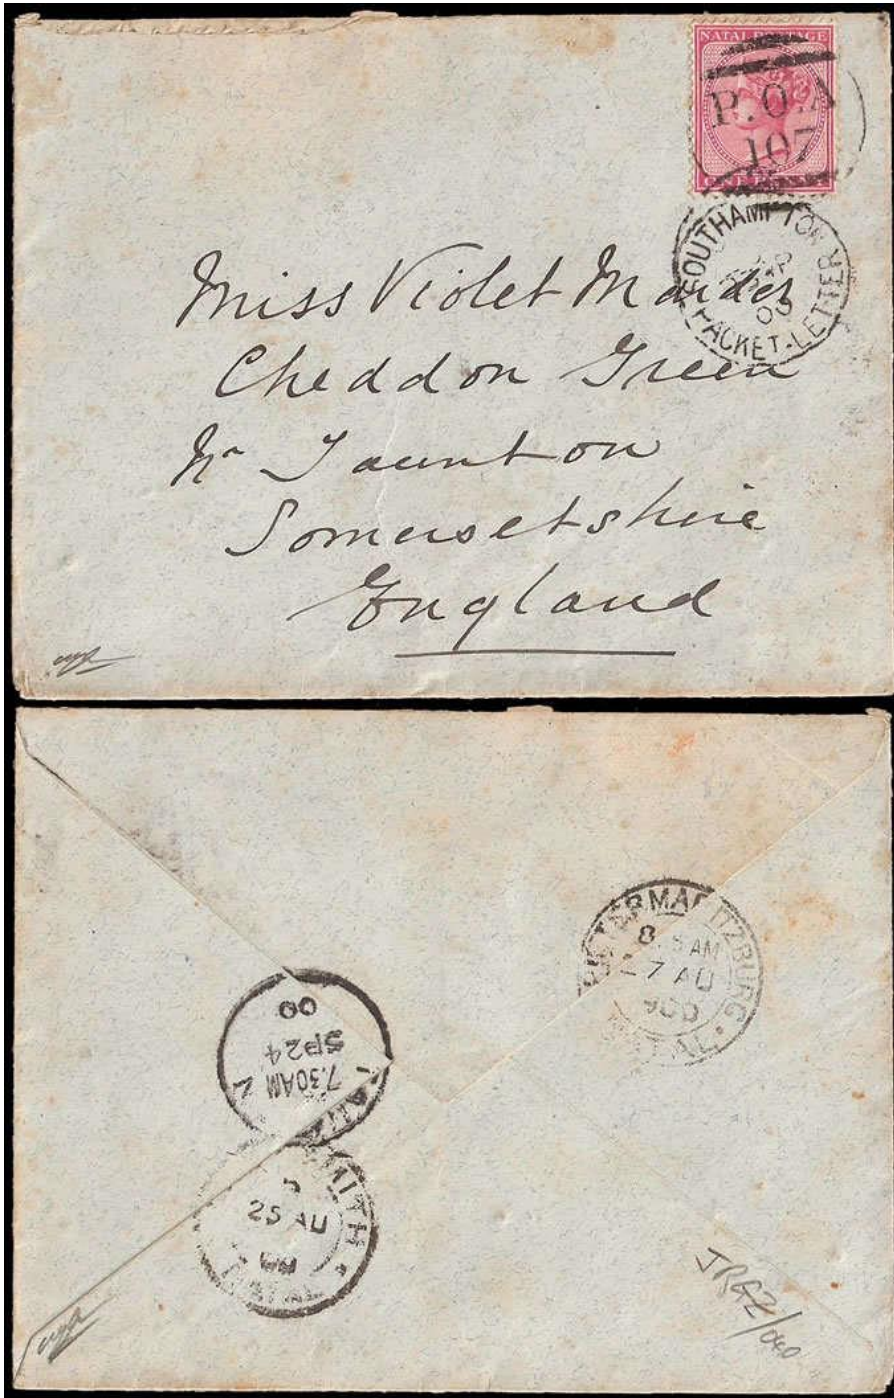 NATAL POSTAGE
P.O.A
107
ONE
SOUTHAMPTON
00
PACKET-LETTER
Miss Violet
Cheddon Green
Nr Taunton
Somersetshire
England
PIETERMARITZBURG
8 AM
27 AU
900
NATAL
00
SP24
7.30AM
SMITH
25 AU
00
NATAL
JRGZ/040